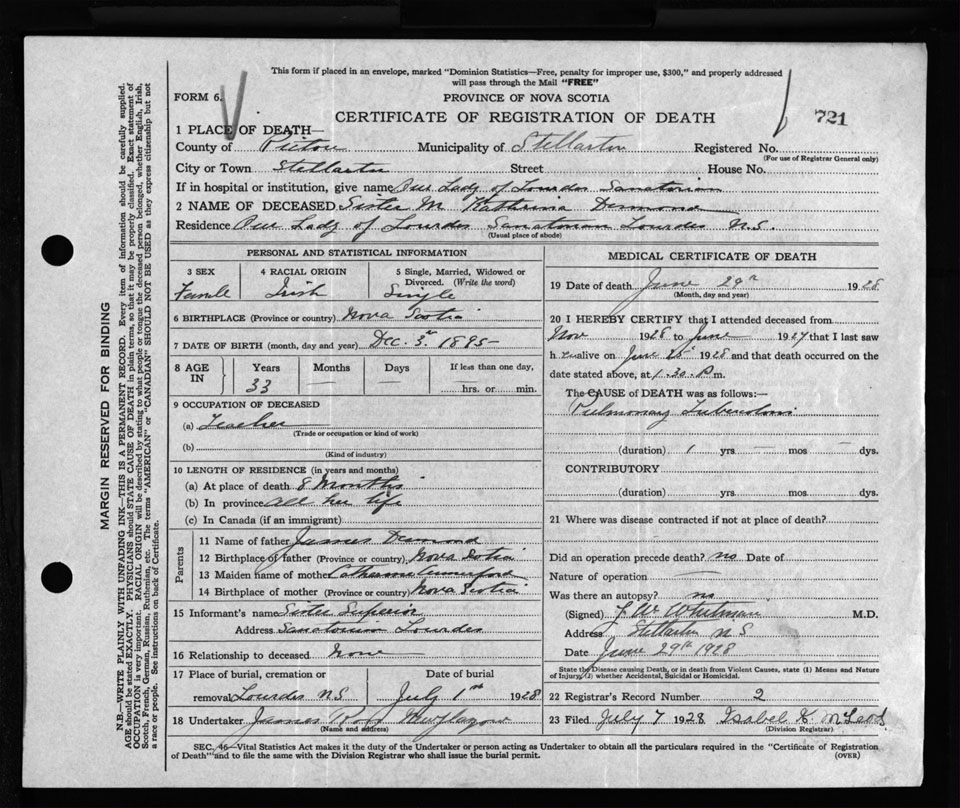 This form if placed in an envelope, marked "Dominion Statistics—Free, penalty for improper use, $300," and properly addressed
will pass through the Mail "FREE"
FORM 6.
PROVINCE OF NOVA SCOTIA
CERTIFICATE OF REGISTRATION OF DEATH
721
1 PLACE OF DEATH—
County of Pictou Municipality of Stellarton Registered No.
(For use of Registrar General only)
City or Town Stellarton Street House No.
If in hospital or institution, give name Our Lady of Lourdes Sanatorium
2 NAME OF DECEASED Sister M Kathrina Desmond
Residence Our Lady of Lourdes Sanatorium Lourdes N.S.
(Usual place of abode)
PERSONAL AND STATISTICAL INFORMATION
3 SEX 4 RACIAL ORIGIN 5 Single, Married, Widowed or
Divorced. (Write the word)
Female Irish Single
6 BIRTHPLACE (Province or country) Nova Scotia
7 DATE OF BIRTH (month, day and year) Dec. 3rd 1895
8 AGE IN Years Months Days If less than one day,
33 — — hrs. or min.
9 OCCUPATION OF DECEASED
(a) Teacher
(Trade or occupation or kind of work)
(b)
(Kind of industry)
10 LENGTH OF RESIDENCE (in years and months)
(a) At place of death 8 Months
(b) In province all her life
(c) In Canada (if an immigrant)
Parents
11 Name of father James Desmond
12 Birthplace of father (Province or country) Nova Scotia
13 Maiden name of mother Catherine
14 Birthplace of mother (Province or country) Nova Scotia
15 Informant's name Sister Superior
Address Sanatorium Lourdes
16 Relationship to deceased None
17 Place of burial, cremation or Date of burial
removal Lourdes N.S July 1st 1928
18 Undertaker James Roy New Glasgow
(Name and address)
MEDICAL CERTIFICATE OF DEATH
19 Date of death June 29th 1928
(Month, day and year)
20 I HEREBY CERTIFY that I attended deceased from
Nov 1928 to June 1927 that I last saw
h er alive on June 25 1928 and that death occurred on the
date stated above, at 1.30 P m.
The CAUSE of DEATH was as follows:—
Pulmonary Tuberculosis
(duration) 1 yrs. — mos — dys.
CONTRIBUTORY
(duration) yrs. mos. dys.
21 Where was disease contracted if not at place of death?
Did an operation precede death? no Date of
Nature of operation —
Was there an autopsy? no
(Signed) J W Whitman M.D.
Address Stellarton N S
Date June 29th 1928
State the Disease causing Death, or in death from Violent Causes, state (1) Means and Nature
of Injury, (2) whether Accidental, Suicidal or Homicidal.
22 Registrar's Record Number 2
23 Filed July 7 1928 Isabel McLeod
(Division Registrar)
SEC. 46—Vital Statistics Act makes it the duty of the Undertaker or person acting as Undertaker to obtain all the particulars required in the "Certificate of Registration
of Death" and to file the same with the Division Registrar who shall issue the burial permit. (OVER)
MARGIN RESERVED FOR BINDING
N.B.—WRITE PLAINLY WITH UNFADING INK—THIS IS A PERMANENT RECORD. Every item of information should be carefully supplied.
AGE should be stated EXACTLY. PHYSICIANS should STATE CAUSE OF DEATH in plain terms, so that it may be properly classified. Exact statement of
OCCUPATION is very important. RACIAL ORIGIN will be described by stating to what people or tongue the deceased person belonged, whether English, Irish,
Scotch, French, German, Russian, Ruthenian, etc. The terms "AMERICAN" or "CANADIAN" SHOULD NOT BE USED as they express citizenship but not
a race or people. See instructions on back of Certificate.